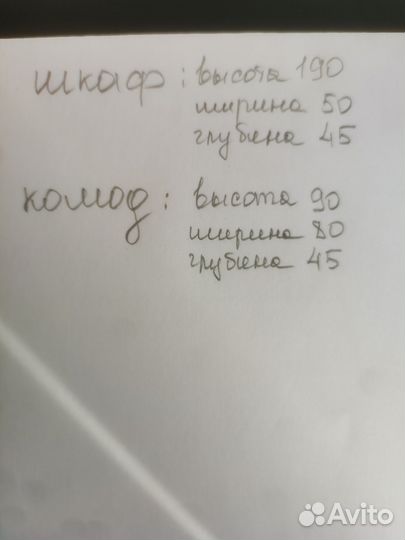 шкаф: высота 190
ширина 50
глубина 45
комод: высота 90
ширина 80
глубина 45
Avito